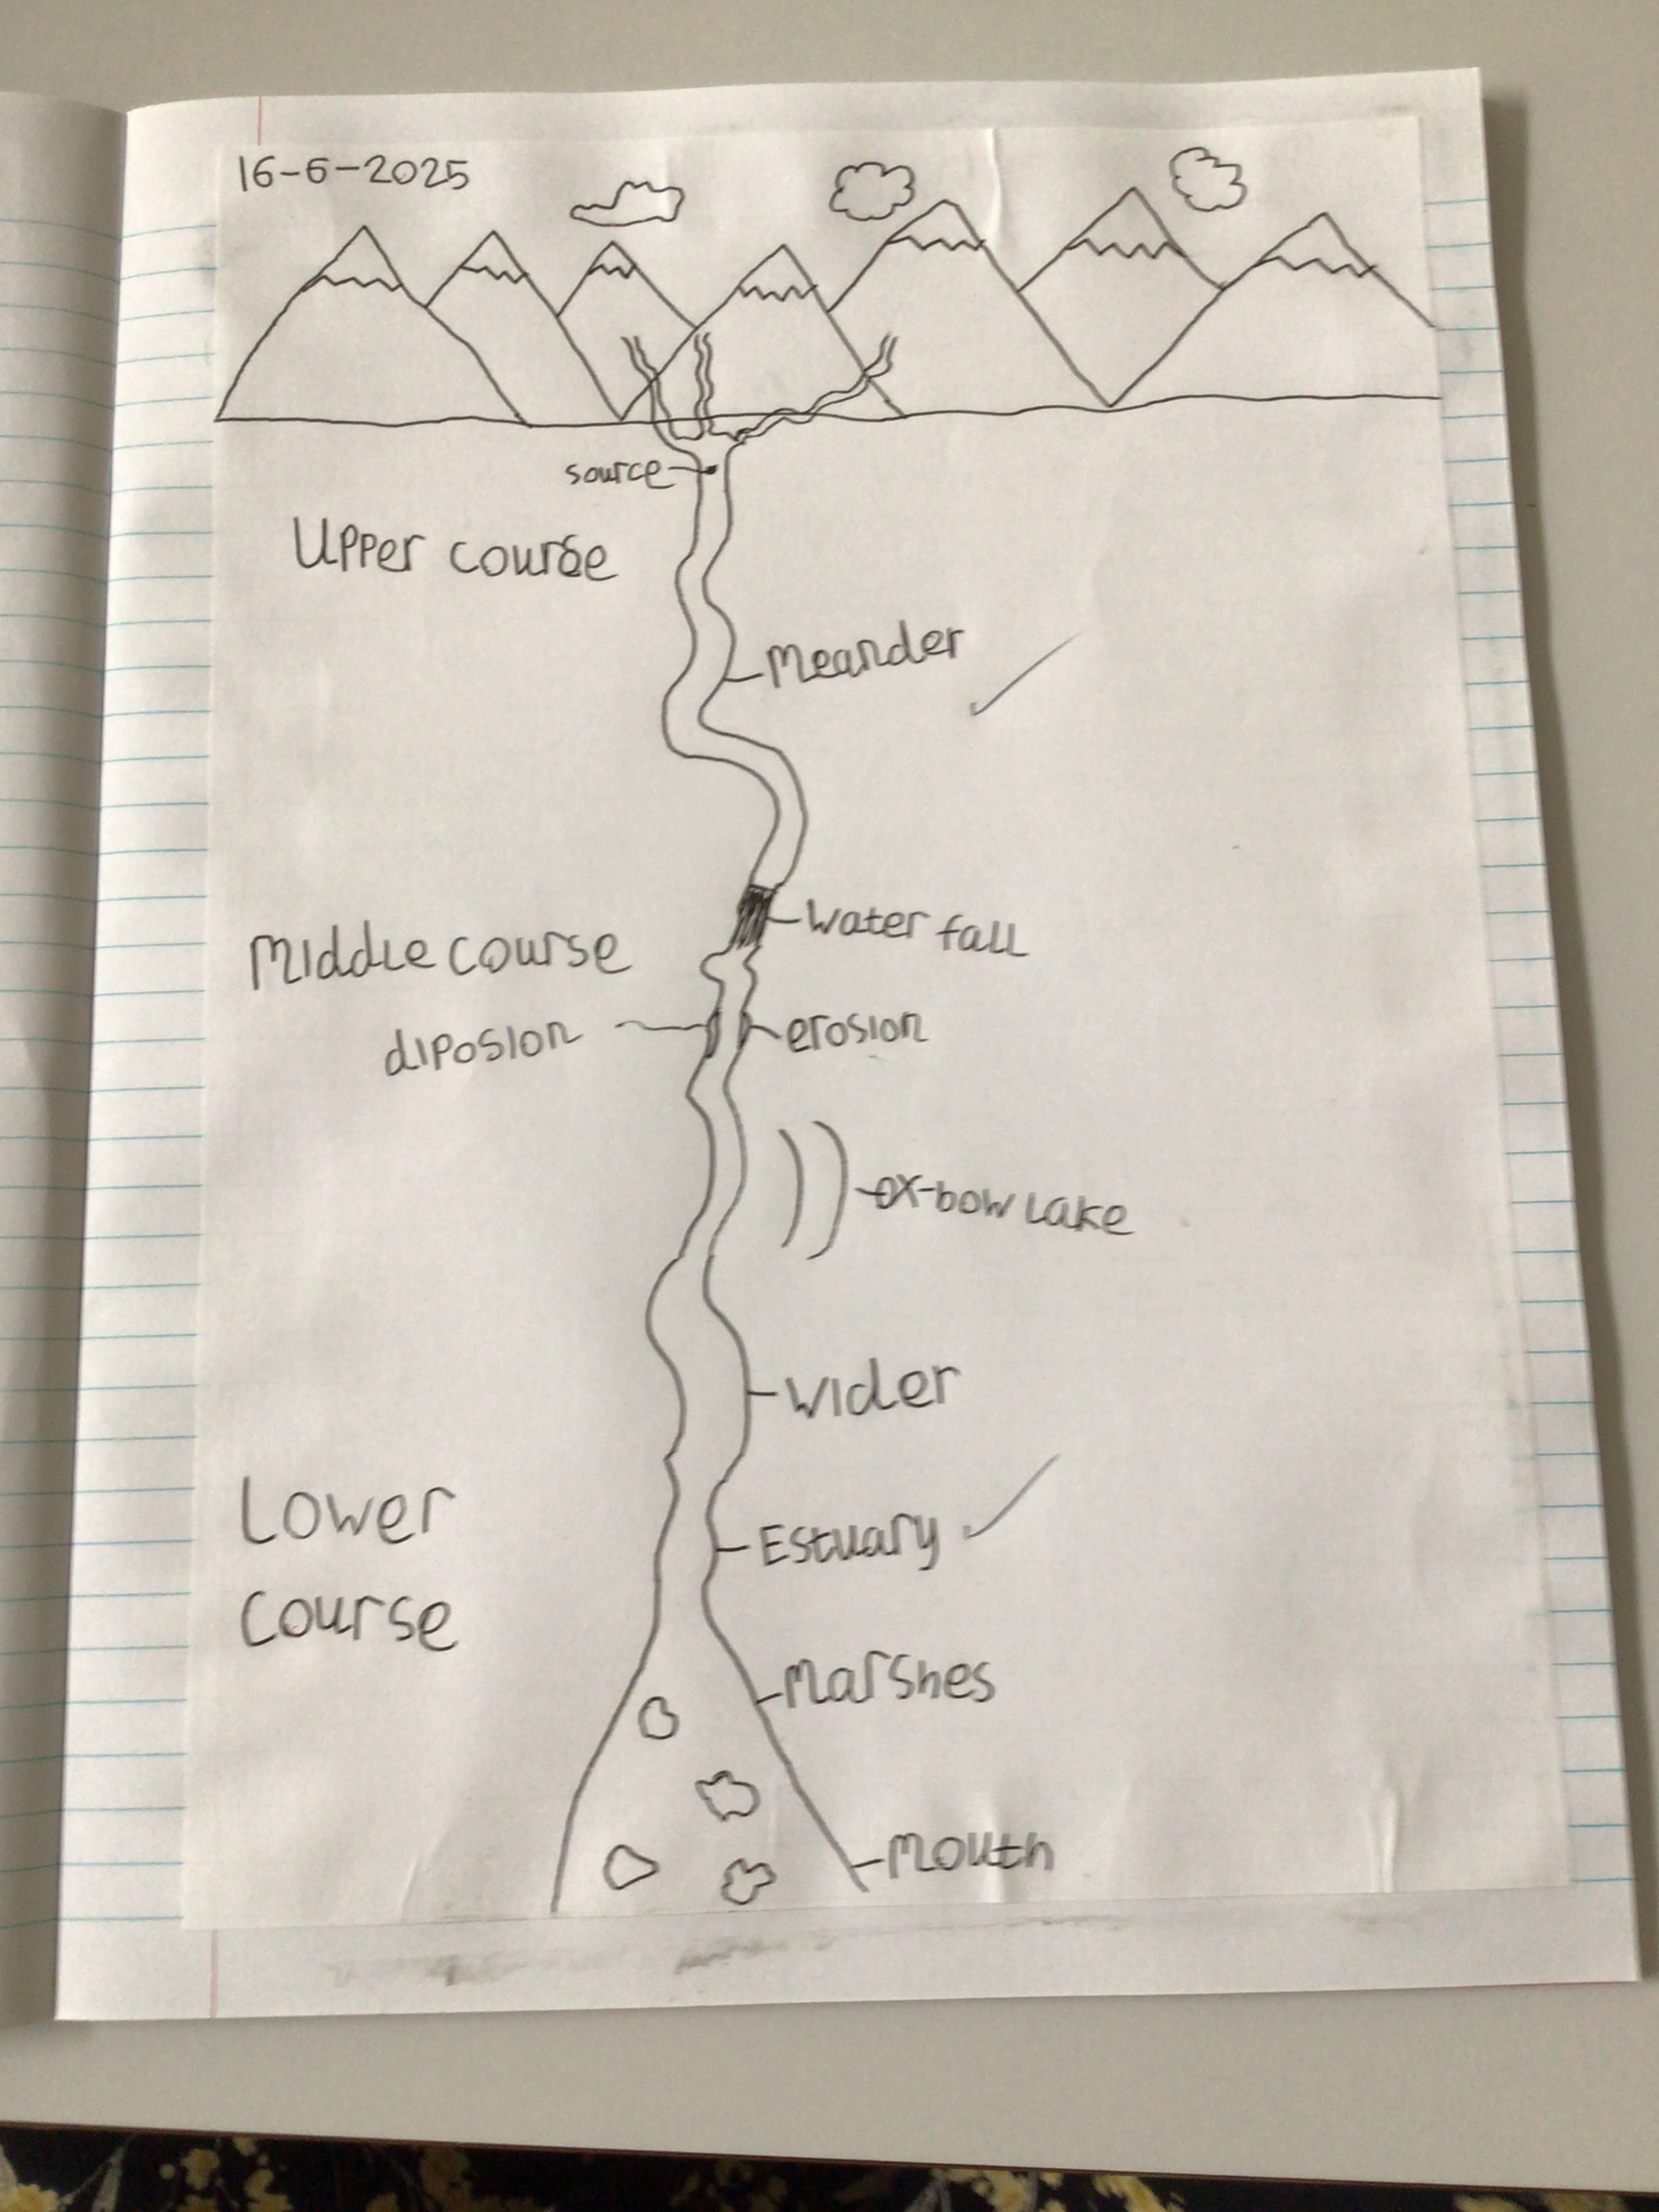 16-6-2025
source
Upper course
Meander
Water fall
Middle course
diposion
erosion
ox-bow lake
Wider
Lower
Course
Estuary
Marshes
Mouth